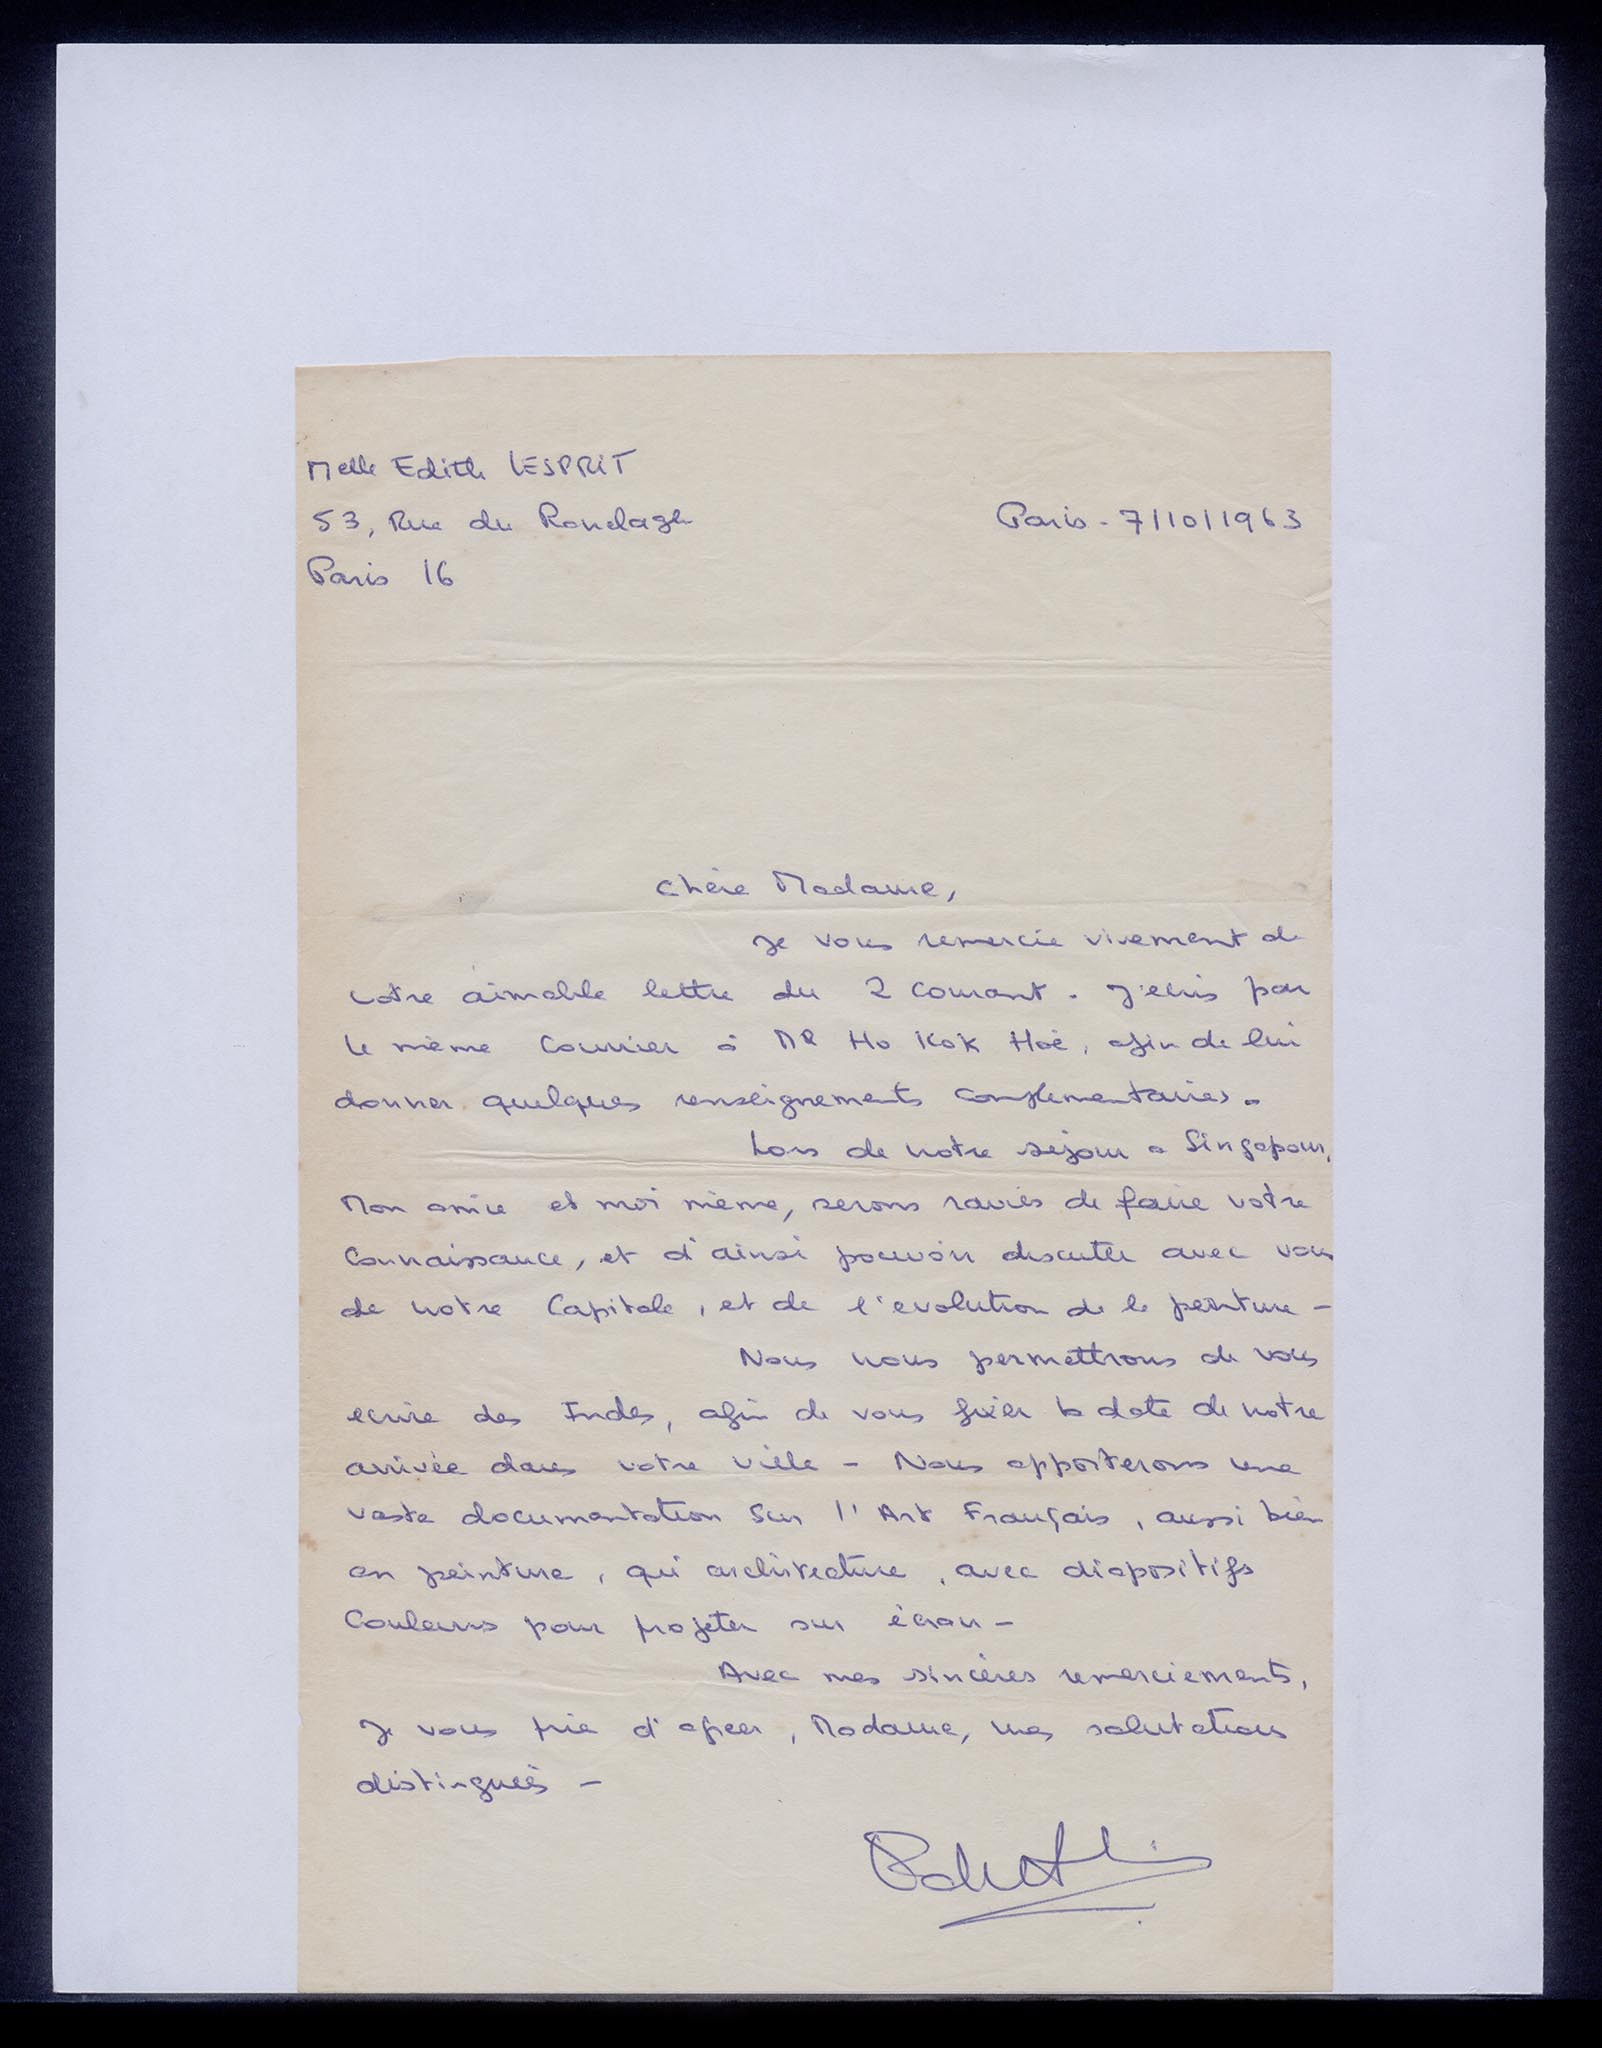 Melle Edith LESPRIT
53, Rue du Ranelagh
Paris 16
Paris - 7/10/1963
Chère Madame,
Je vous remercie vivement de
votre aimable lettre du 2 courant. J'ecris par
le même courrier à Mr Ho Kok Hoe, afin de lui
donner quelques renseignements complementaires.
Lors de notre séjour a Singapour,
Mon amie et moi même, serons ravies de faire votre
connaissance, et d'ainsi pouvoir discuter avec vous
de notre Capitale, et de l'evolution de la peinture -
Nous nous permettrons de vous
ecrire des Indes, afin de vous fixer la date de notre
arrivée dans votre ville - Nous apporterons une
vaste documentation sur l'Art Français, aussi bien
en peinture, qu'architecture, avec diapositifs
Couleurs pour projeter sur écran -
Avec mes sincères remerciements,
Je vous prie d'agreer, Madame, mes salutations
distinguées -